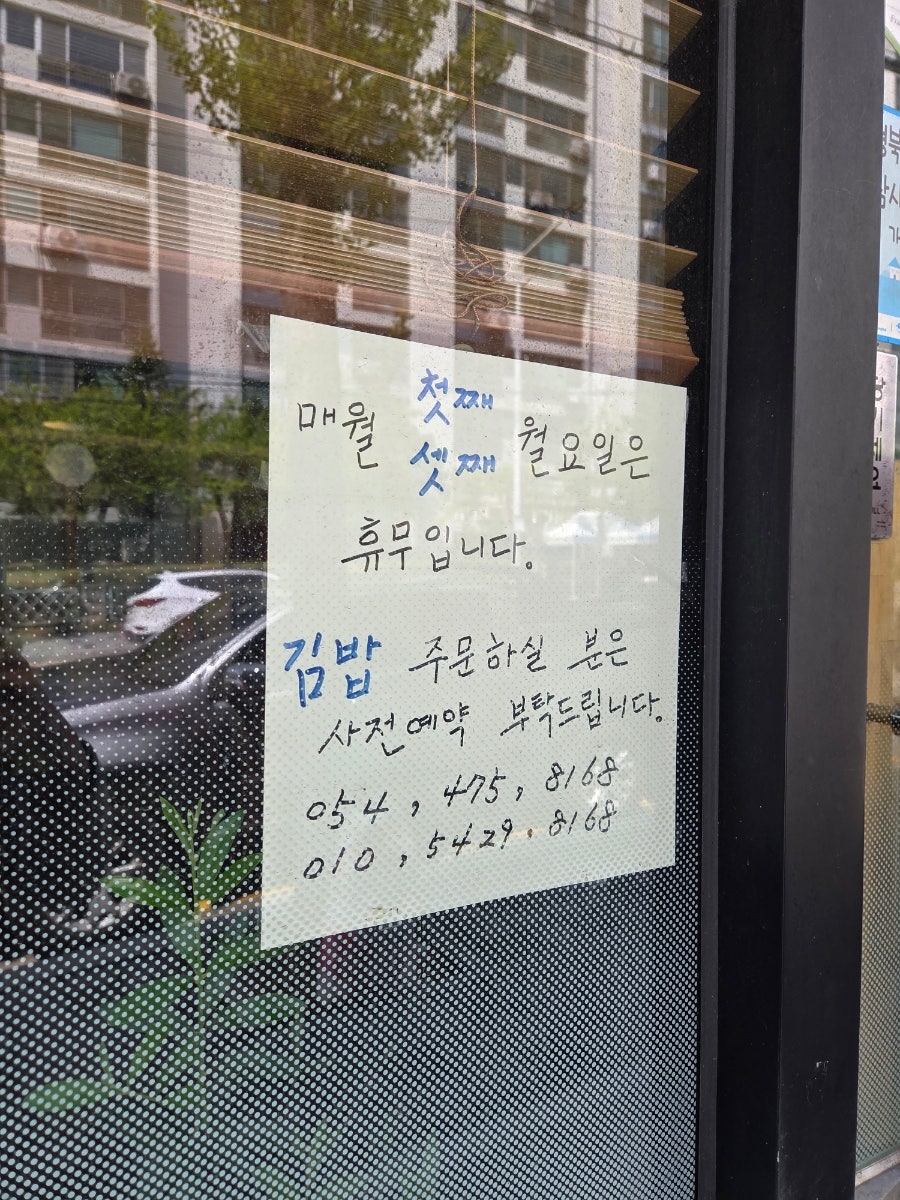 매월 첫째 월요일은
셋째
휴무입니다.
김밥 주문하실 분은
사전예약 부탁드립니다.
054, 475, 8168
010, 5429. 8168